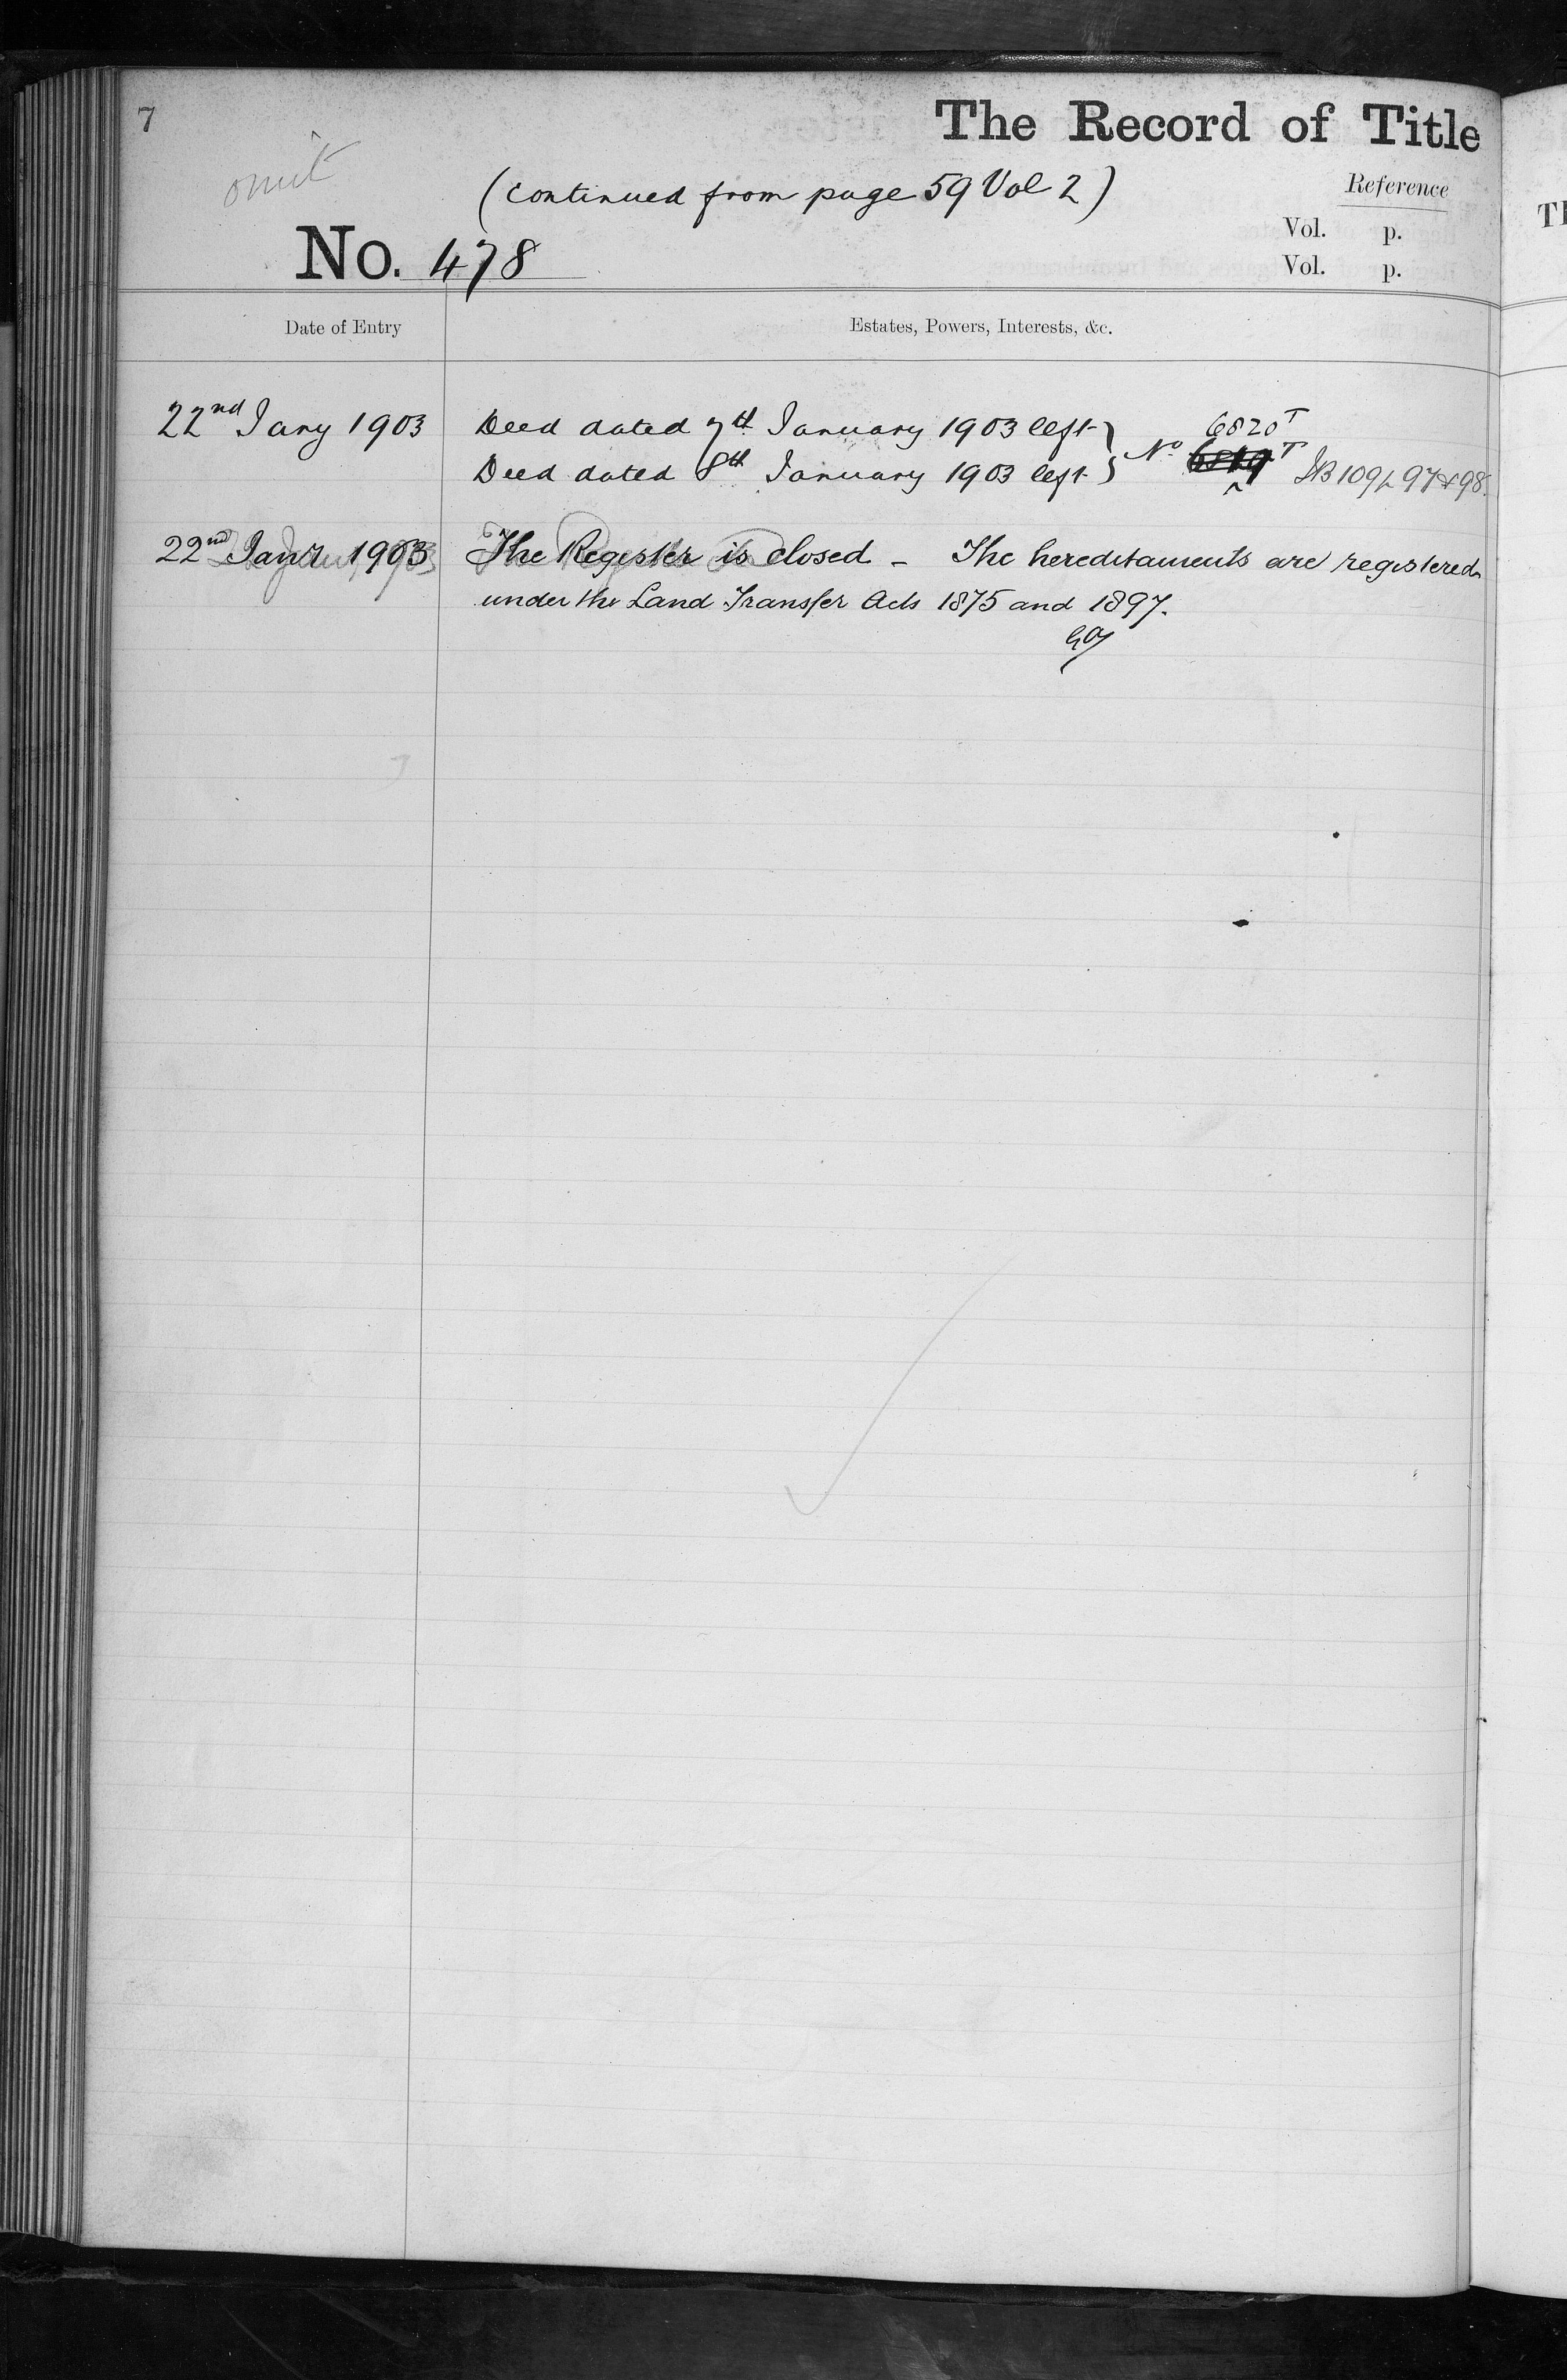 7
The Record of Title
omit
(continued from page 59 Vol 2)
Reference
Vol. p.
No. 478
Vol. p.
Date of Entry
Estates, Powers, Interests, &c.
22nd Jany 1903 Deed dated 7th January 1903 left } No. 6820T
Deed dated 8th January 1903 left } 6819T 109 97 & 98.
22nd Jany 1903 The Register is closed – The hereditaments are registered
under the Land Transfer Acts 1875 and 1897.